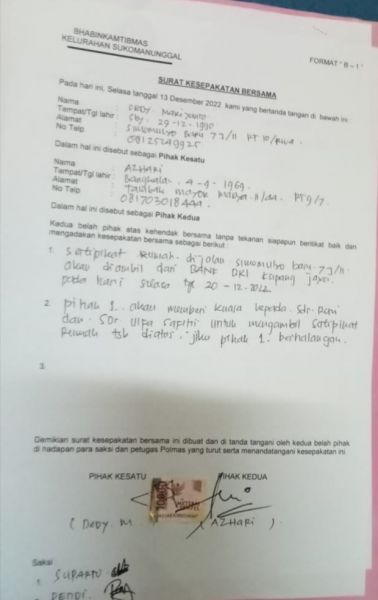 BHABINKAMTIBMAS
KELURAHAN SUKOMANUNGGAL
FORMAT "B - 1"
SURAT KESEPAKATAN BERSAMA
Pada hari ini, Selasa tanggal 13 Desember 2022 kami yang bertanda tangan di bawah ini :
Nama : DEDY
Tempat/Tgl lahir : Sby. 29-12-1990
Alamat : Simomulyo Baru 7J/11 RT 10/
No Telp : 08125249925
Dalam hal ini disebut sebagai Pihak Kesatu
Nama : AZHARI
Tempat/Tgl lahir : Bangkalan. 4-9-1969
Alamat : Tambak mayor
No Telp : 081703018444.
Dalam hal ini disebut sebagai Pihak Kedua
Kedua belah pihak atas kehendak bersama tanpa tekanan siapapun beritikat baik dan
mengadakan kesepakatan bersama sebagai berikut :
1. Sertipikat Rumah dijalan simomulyo baru 7J/11.
akan diambil dari BANK DKI
pada hari selasa tgl 20-12-2022
2. pihak 1. akan memberi kuasa kepada. Sdr.
dan. Sdr untuk mengambil Satipikat
Rumah tsb diatas. jika pihak 1. berhalangan.
3.
Demikian surat kesepakatan bersama ini dibuat dan di tanda tangani oleh kedua belah pihak
di hadapan para saksi dan petugas Polmas yang turut serta menandatangani kesepakatan ini.
PIHAK KESATU PIHAK KEDUA
( DEDY. M. ) ( AZHARI ).
Saksi
1. SUPARTO